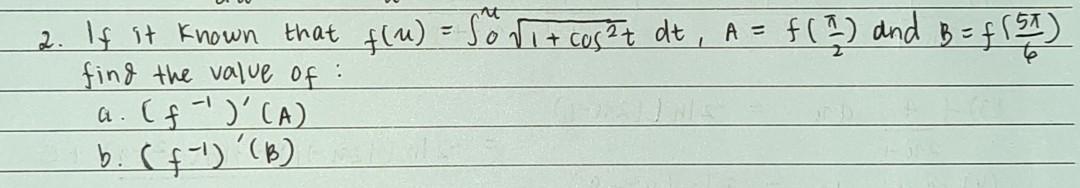 2. If it known that f(u) = ∫₀ᵘ √(1 + cos²t) dt, A = f(π/2) and B = f(5π/6)
find the value of :
a. (f⁻¹)'(A)
b. (f⁻¹)'(B)